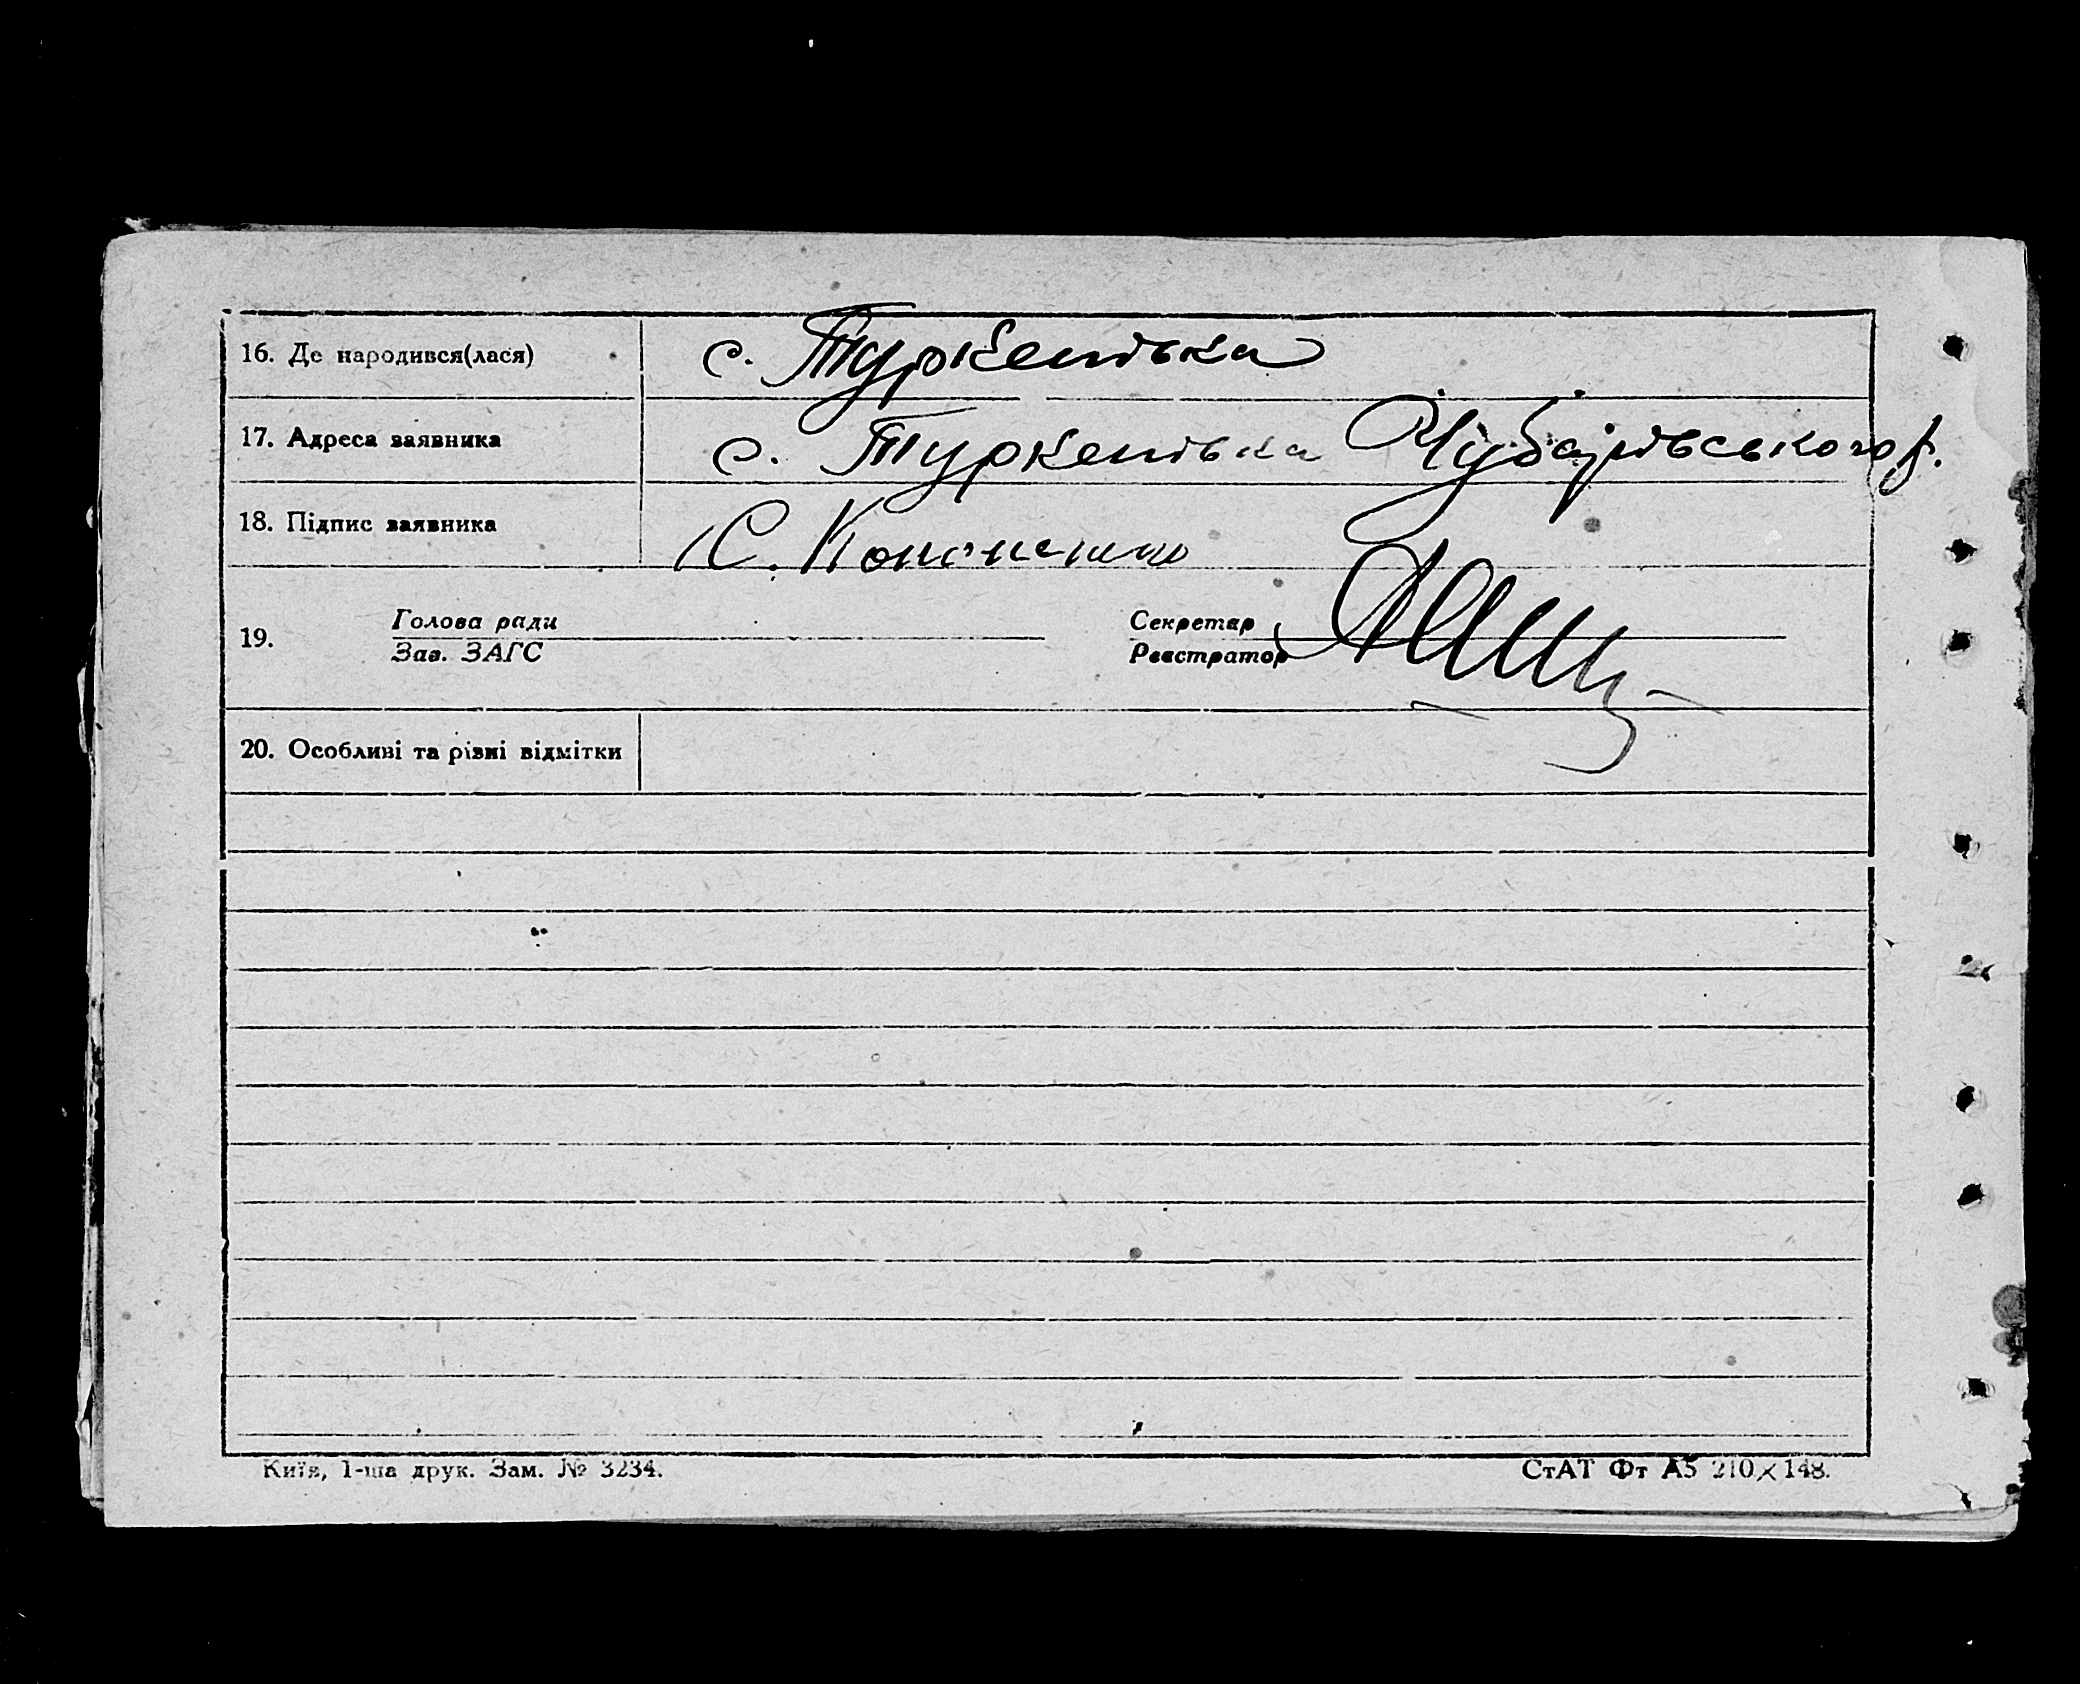 16. Де народився(лася) с. Туркенівка
17. Адреса заявника с. Туркенівка Чубарівського р.
18. Підпис заявника С. Кононенко
Голова ради Секретар
19.
Зав. ЗАГС Реєстратор
20. Особливі та різні відмітки
Київ, 1-ша друк. Зам. № 3234. СтАТ Фт А5 210×148.